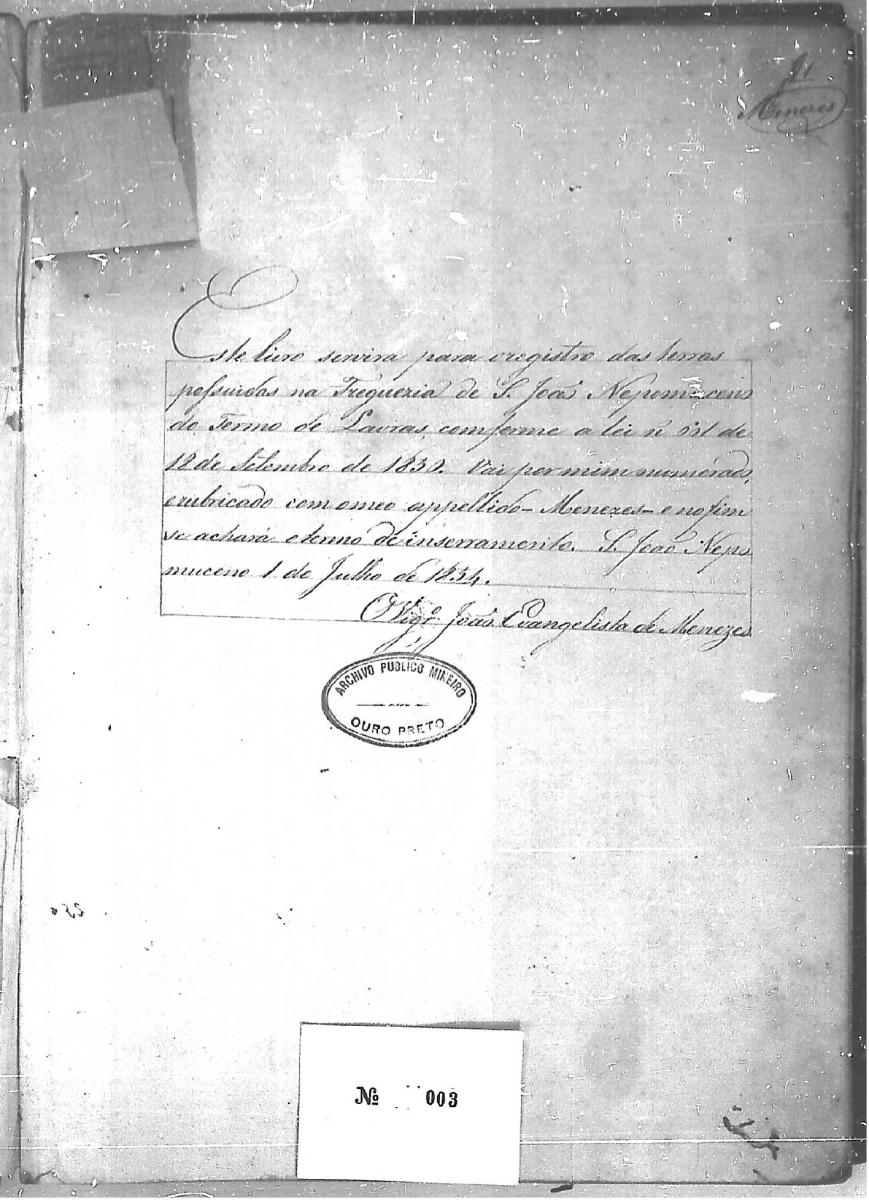 1
Menezes
Este livro servira para o registro das terras
possuidas na Freguezia de S. João Nepomuceno
do Termo de Lavras, comforme a lei n 601 de
18 de Setembro de 1850. Vai por mim numerado,
e rubricado com o meo appellido - Menezes - e no fim
se achará o termo de inserramento. S. João Nepo
muceno 1 de Julho de 1854.
O Vigr.o João Evangelista de Menezes
ARCHIVO PUBLICO MINEIRO
OURO PRETO
No 003